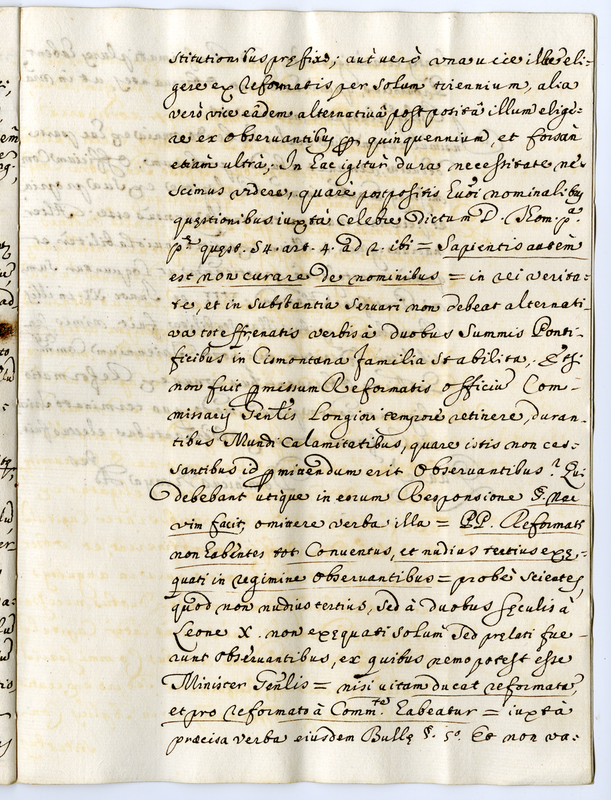 stitutionibus pręfixo; aut verò una vice illū eli-
gere ex Reformatis per solum triennium, alia
verò vice eādem alternativā postpositā illum elige-
re ex Observantibus p quinquennium, et forsan
etiam ultrà; In hac igitur dura necessitate ne-
scimus videre, quarè postpositis nominalibus
quęstionibus iuxtà celebre Dictum D. Thom. pª.
pª. quęst. 54. art. 4. ad 2. ibi = Sapientis autem
est non curare de nominibus = in rei verita-
te, et in substantia servari non debeat alternati-
va tot effrenatis verbis à duobus Summis Ponti-
ficibus in Cismontana familia stabilita; Etsi
non fuit pmissum Reformatis officiū Com-
missarij Gen̄lis Longiori tempore retinere, duran-
tibus Mundi calamitatibus, quare istis non ces-
santibus id pmittendum erit Observantibus? Qui
debebant utique in eorum Responsione §. Nec
vim facit, omittere verba illa = PP. Reformati
non habentes tot Conventus, et nudius tertius exę-
quati in regimine Observantibus = probè scientes,
quod non nudius tertius, sed à duobus sęculis à
Leone X. non exęquati solum sed pręlati fue-
runt Observantibus, ex quibus nemo potest esse
Minister Gen̄lis = nisi vitam ducat reformatā,
et pro reformato à Comm.te habeatur = iuxtà
pręcisa verba eiusdem Bullę §. 5º. Et non va-